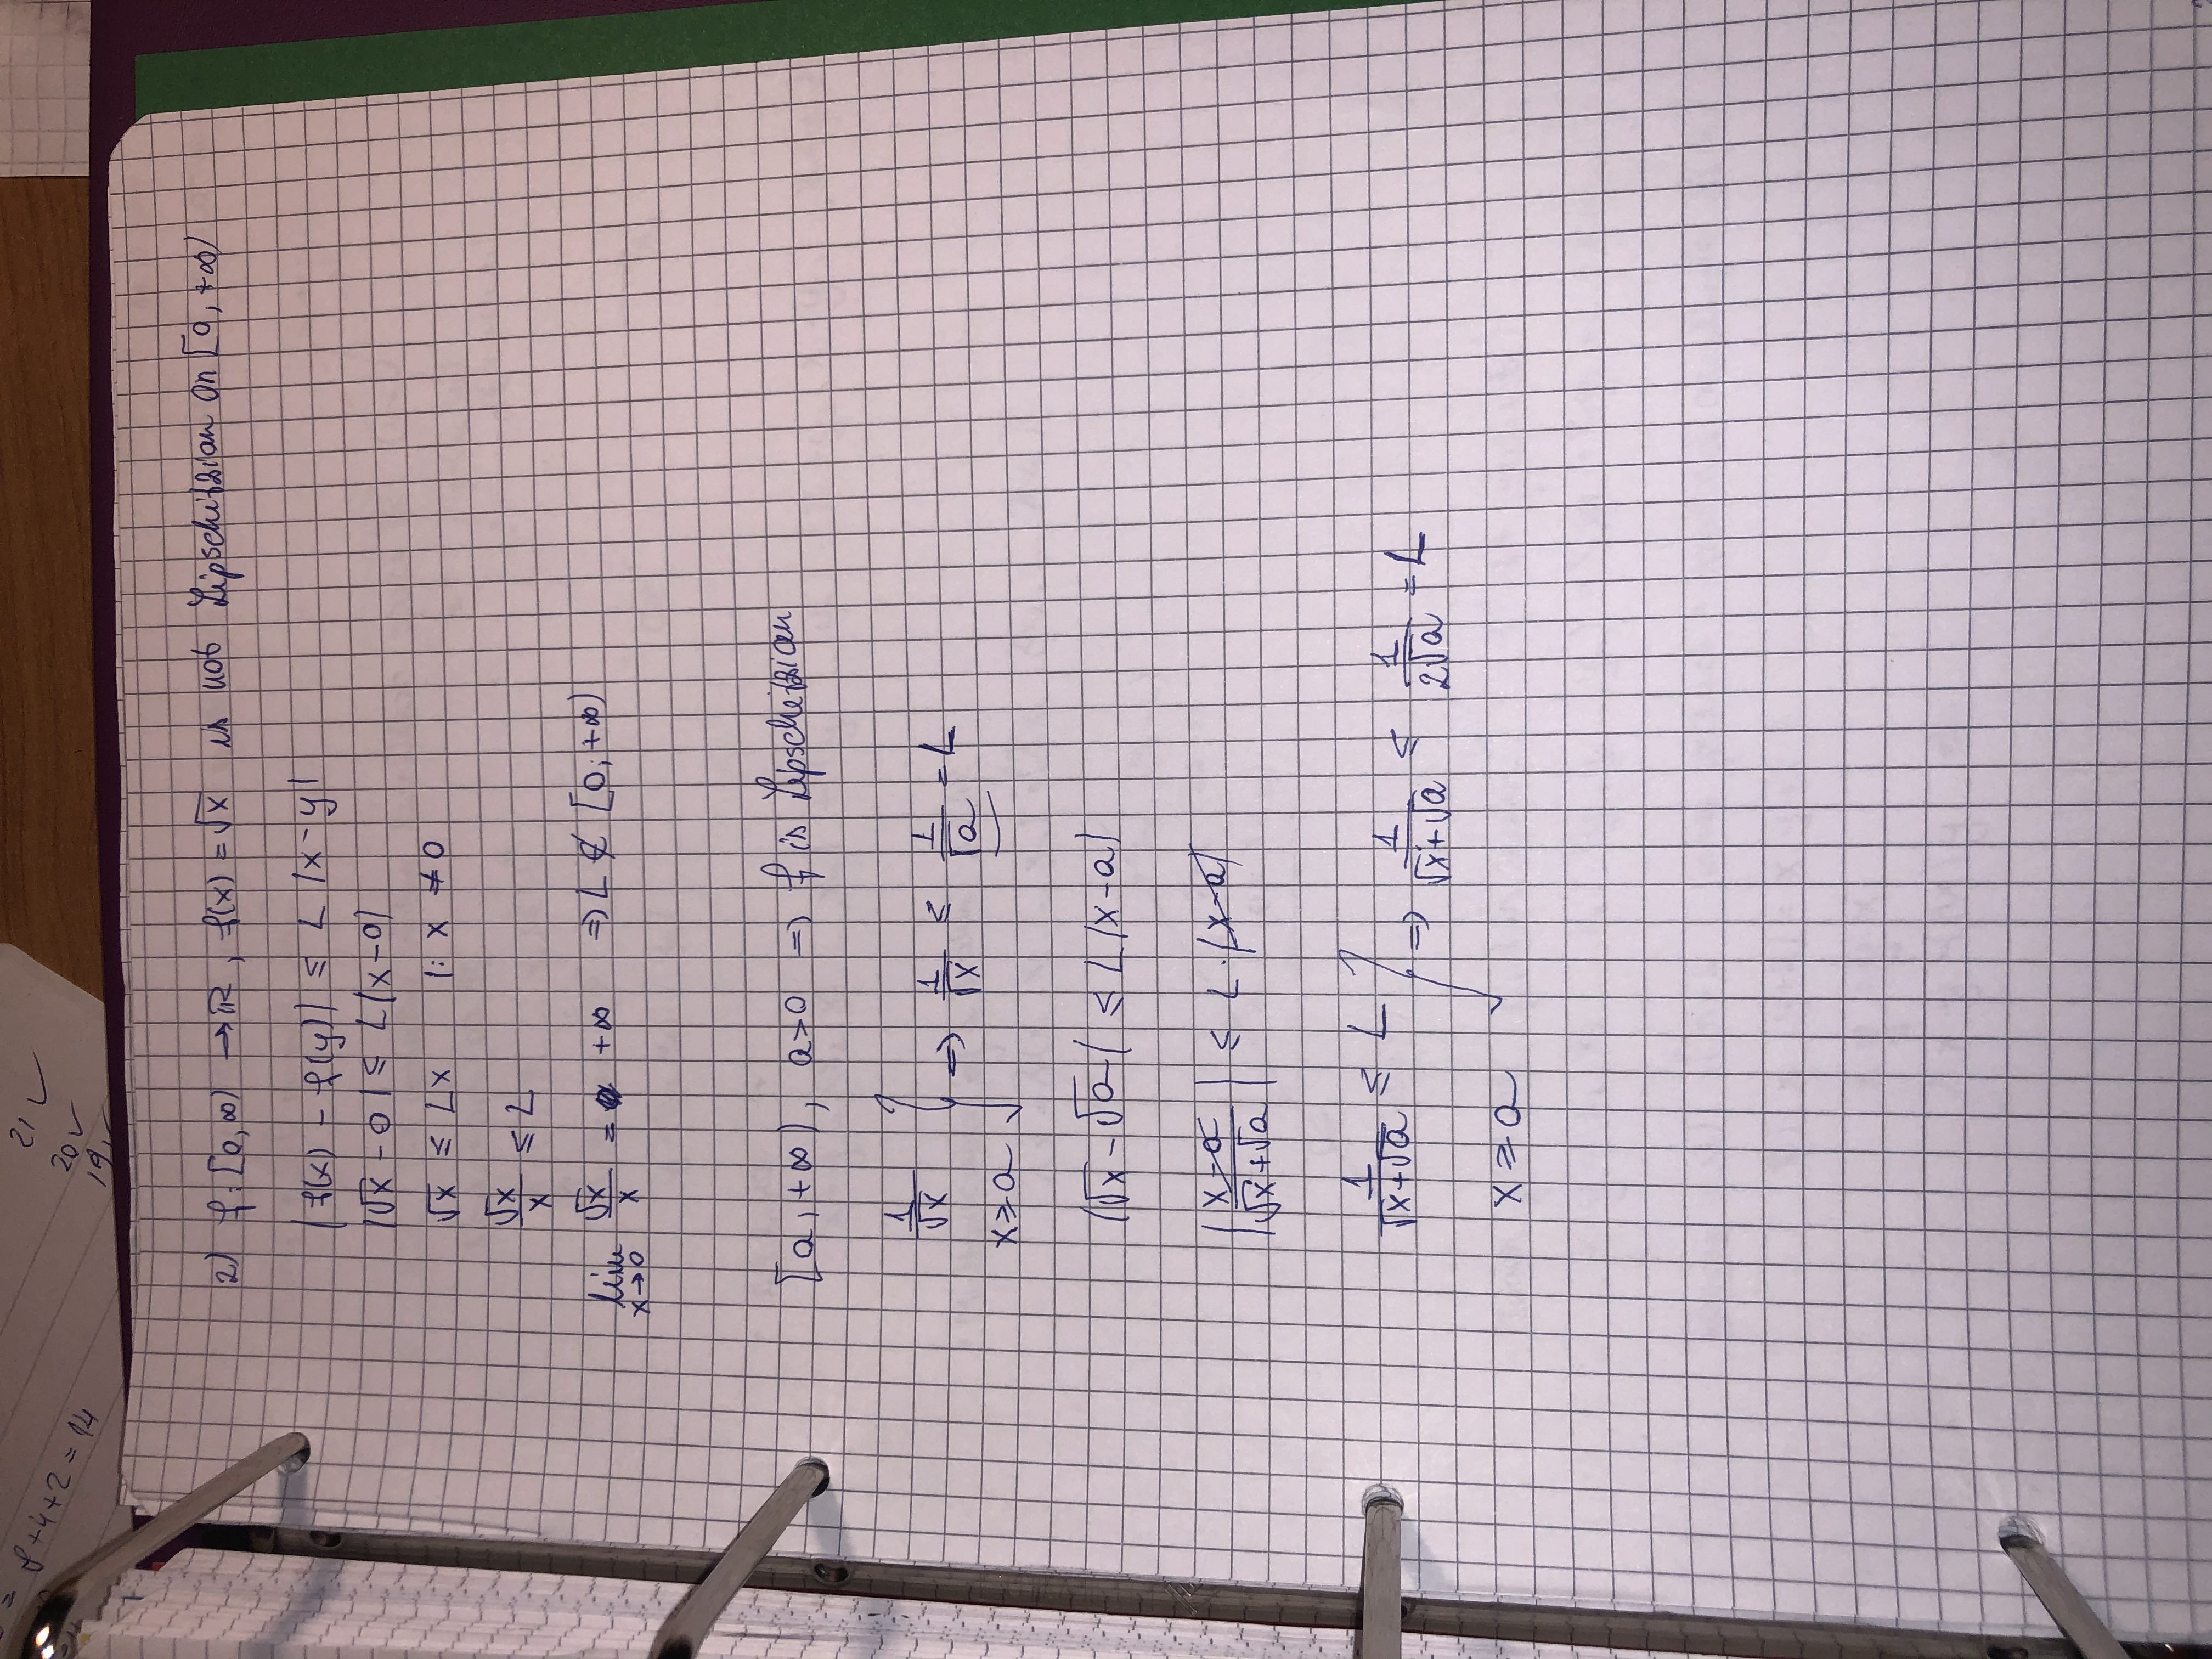 8+4+2=14
21 ✓
20 ✓
19 ✓
2) f: [0, ∞) → ℝ, f(x) = √x is not Lipschitzian on [0, +∞)
|f(x) - f(y)| ≤ L |x-y|
|√x - 0| ≤ L|x-0|
√x ≤ Lx |: x ≠ 0
√x/x ≤ L
lim x→0 √x/x = +∞ ⇒ L ∉ [0; +∞)
[a, +∞), a>0 ⇒ f is Lipschitzian
1/√x x≥a } ⇒ 1/√x ≤ 1/√a = L
|√x - √a| ≤ L |x-a|
|(x-a)/(√x+√a)| ≤ L · |x-a|
1/(√x+√a) ≤ L x≥a } ⇒ 1/(√x+√a) ≤ 1/(2√a) = L